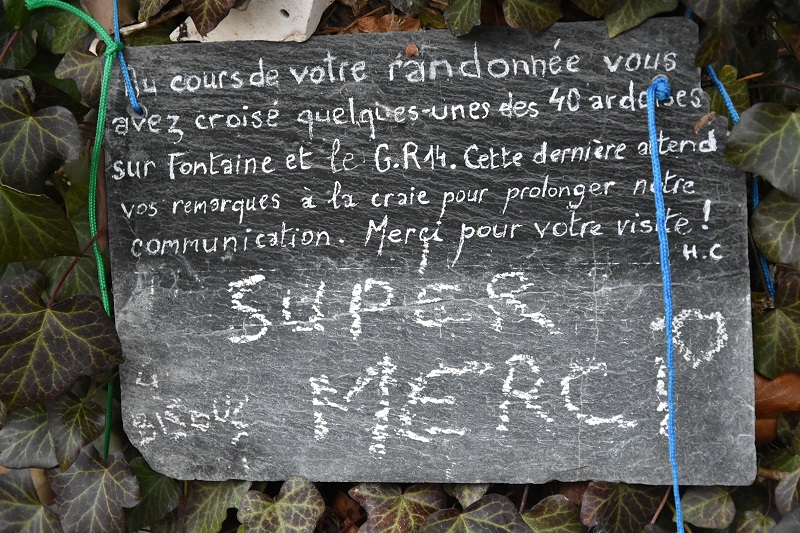 Au cours de votre randonnée vous
avez croisé quelques-unes des 40 ardoises
sur Fontaine et le G.R14. Cette dernière attend
vos remarques à la craie pour prolonger notre
communication. Merci pour votre visite !
H.C
SUPER
MERCI
BISOUS